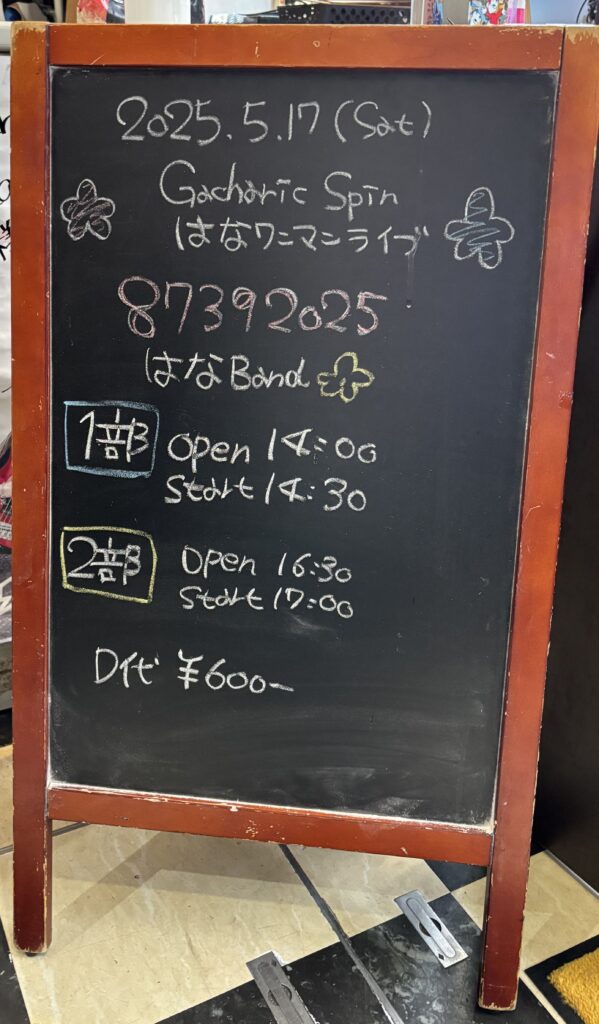 2025.5.17 (Sat)
Gacharic Spin
はなワンマンライブ
87392025
はなBand
1部 open 14:00
start 14:30
2部 open 16:30
start 17:00
D代 ¥600-